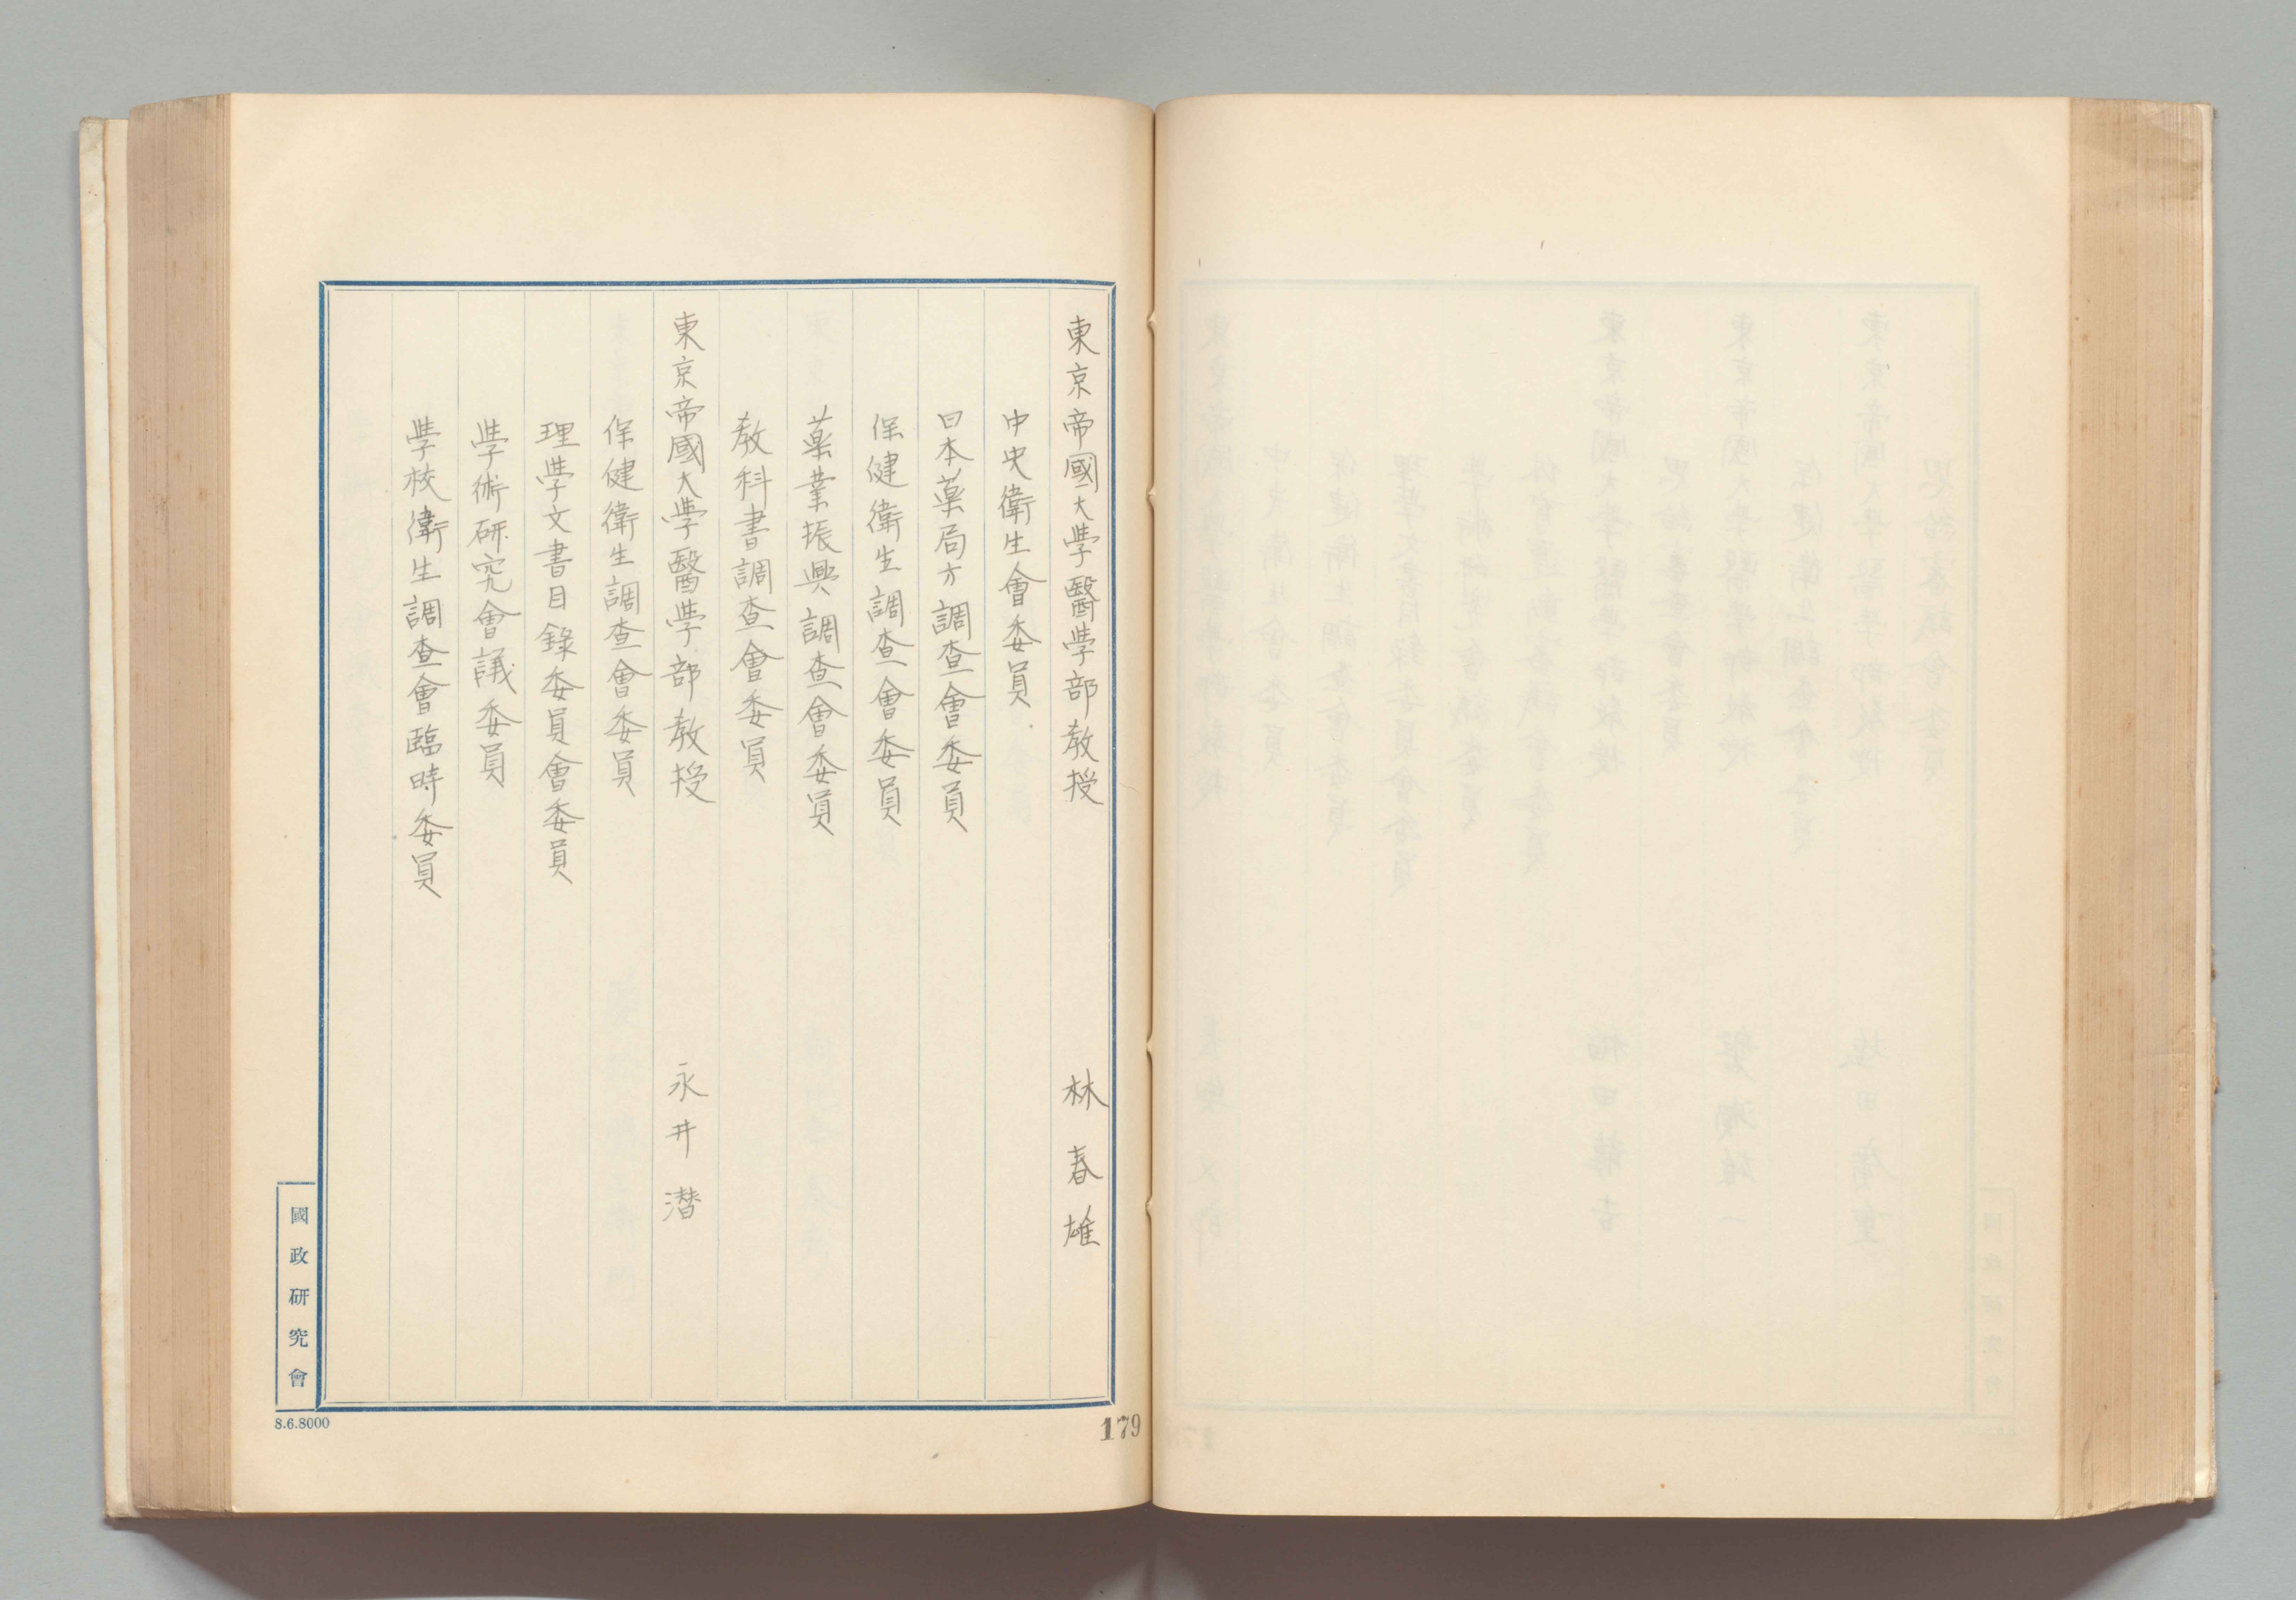 東京帝國大學醫學部教授　林春雄
中央衛生會委員
日本藥局方調查會委員
保健衛生調查會委員
藥業振興調查會委員
教科書調查會委員
東京帝國大學醫學部教授　永井潛
保健衛生調查會委員
理學文書目錄委員會委員
學術研究會議委員
學校衛生調查會臨時委員
國政研究會
8.6.8000
179